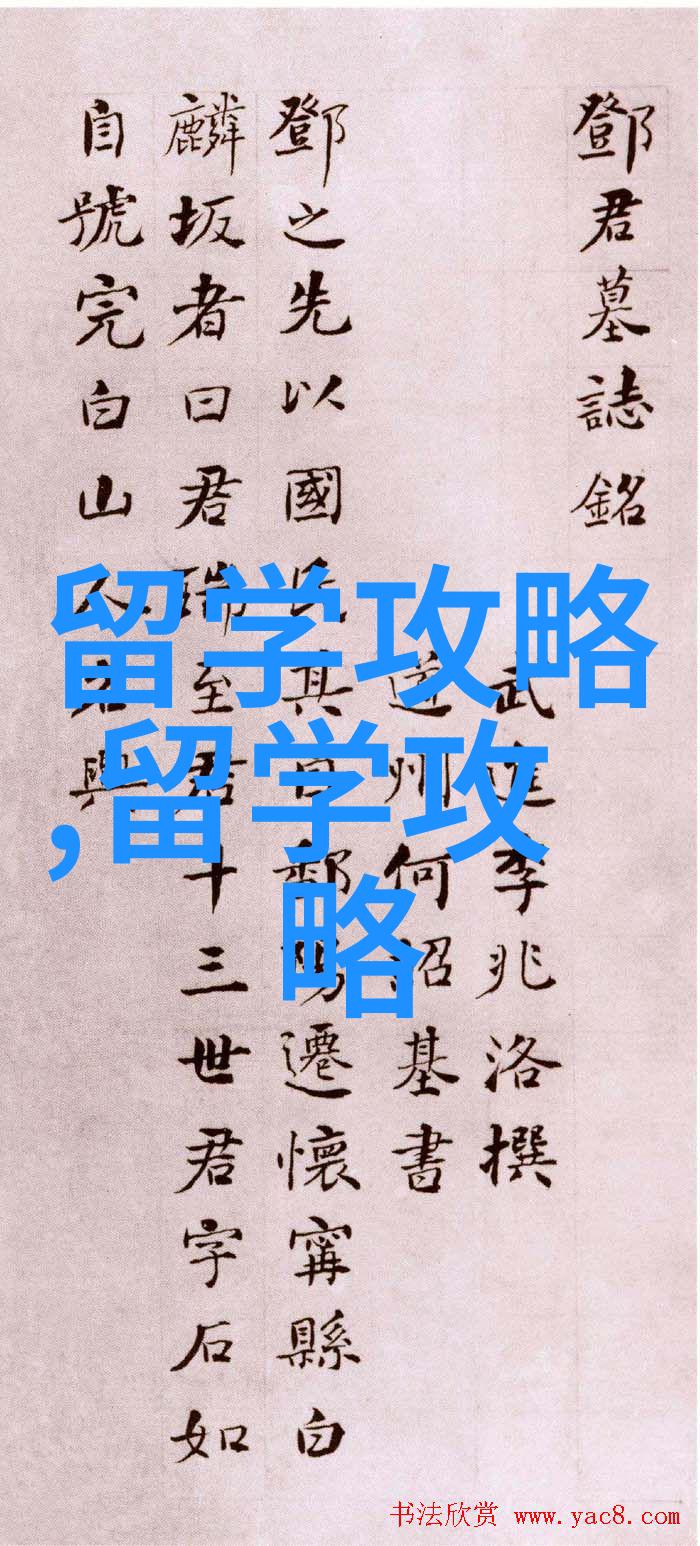 鄧君墓誌銘
武進李兆洛撰
道州何紹基書
鄧之先以國氏其曰鄱陽遷懷寧縣白
麟坂者曰君瑞至君十三世君字石如
自號完白山人者與
留学攻略
,留学攻
略
书法欣赏 www.yac8.com